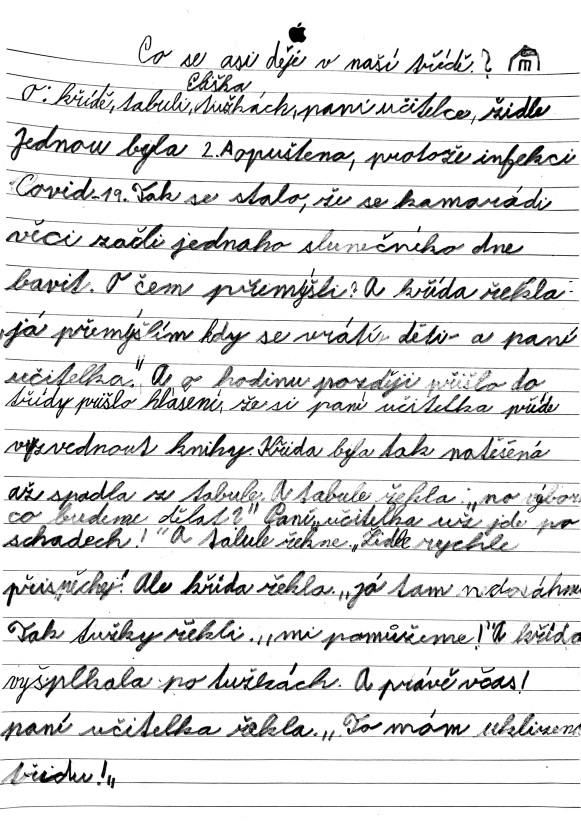 Co se asi děje v naší třídě.?
Eliška
O: křídě, tabuli, tužkách, paní učitelce, židle
Jednou byla 2.A opuštena, protože infekci
Covid-19. Tak se stalo, že se kamarádi
věci začli jednoho slunečního dne
bavit. O čem přemýšlí? A křída řekla
"já přemýšlím kdy se vrátí děti a paní
učitelka." A o hodinu později přišlo do
třídy přišlo hlášení, že si paní učitelka přide
vyzvednout knihy. Křída byla tak natěšená
až spadla z tabule. A tabule řekla: "no výbor
co budeme dělat?" Paní učitelka už jde po
schadech!" A tabule řekne "Židle rychle
přispěchej! Ale křída řekla "já tam nedosáhnu
Tak tužky řekli. "mi pomůžeme!" A křída
vyšplhala po tužkách. A právě včas!
paní učitelka řekla. "To mám uklizeno
třídu!"